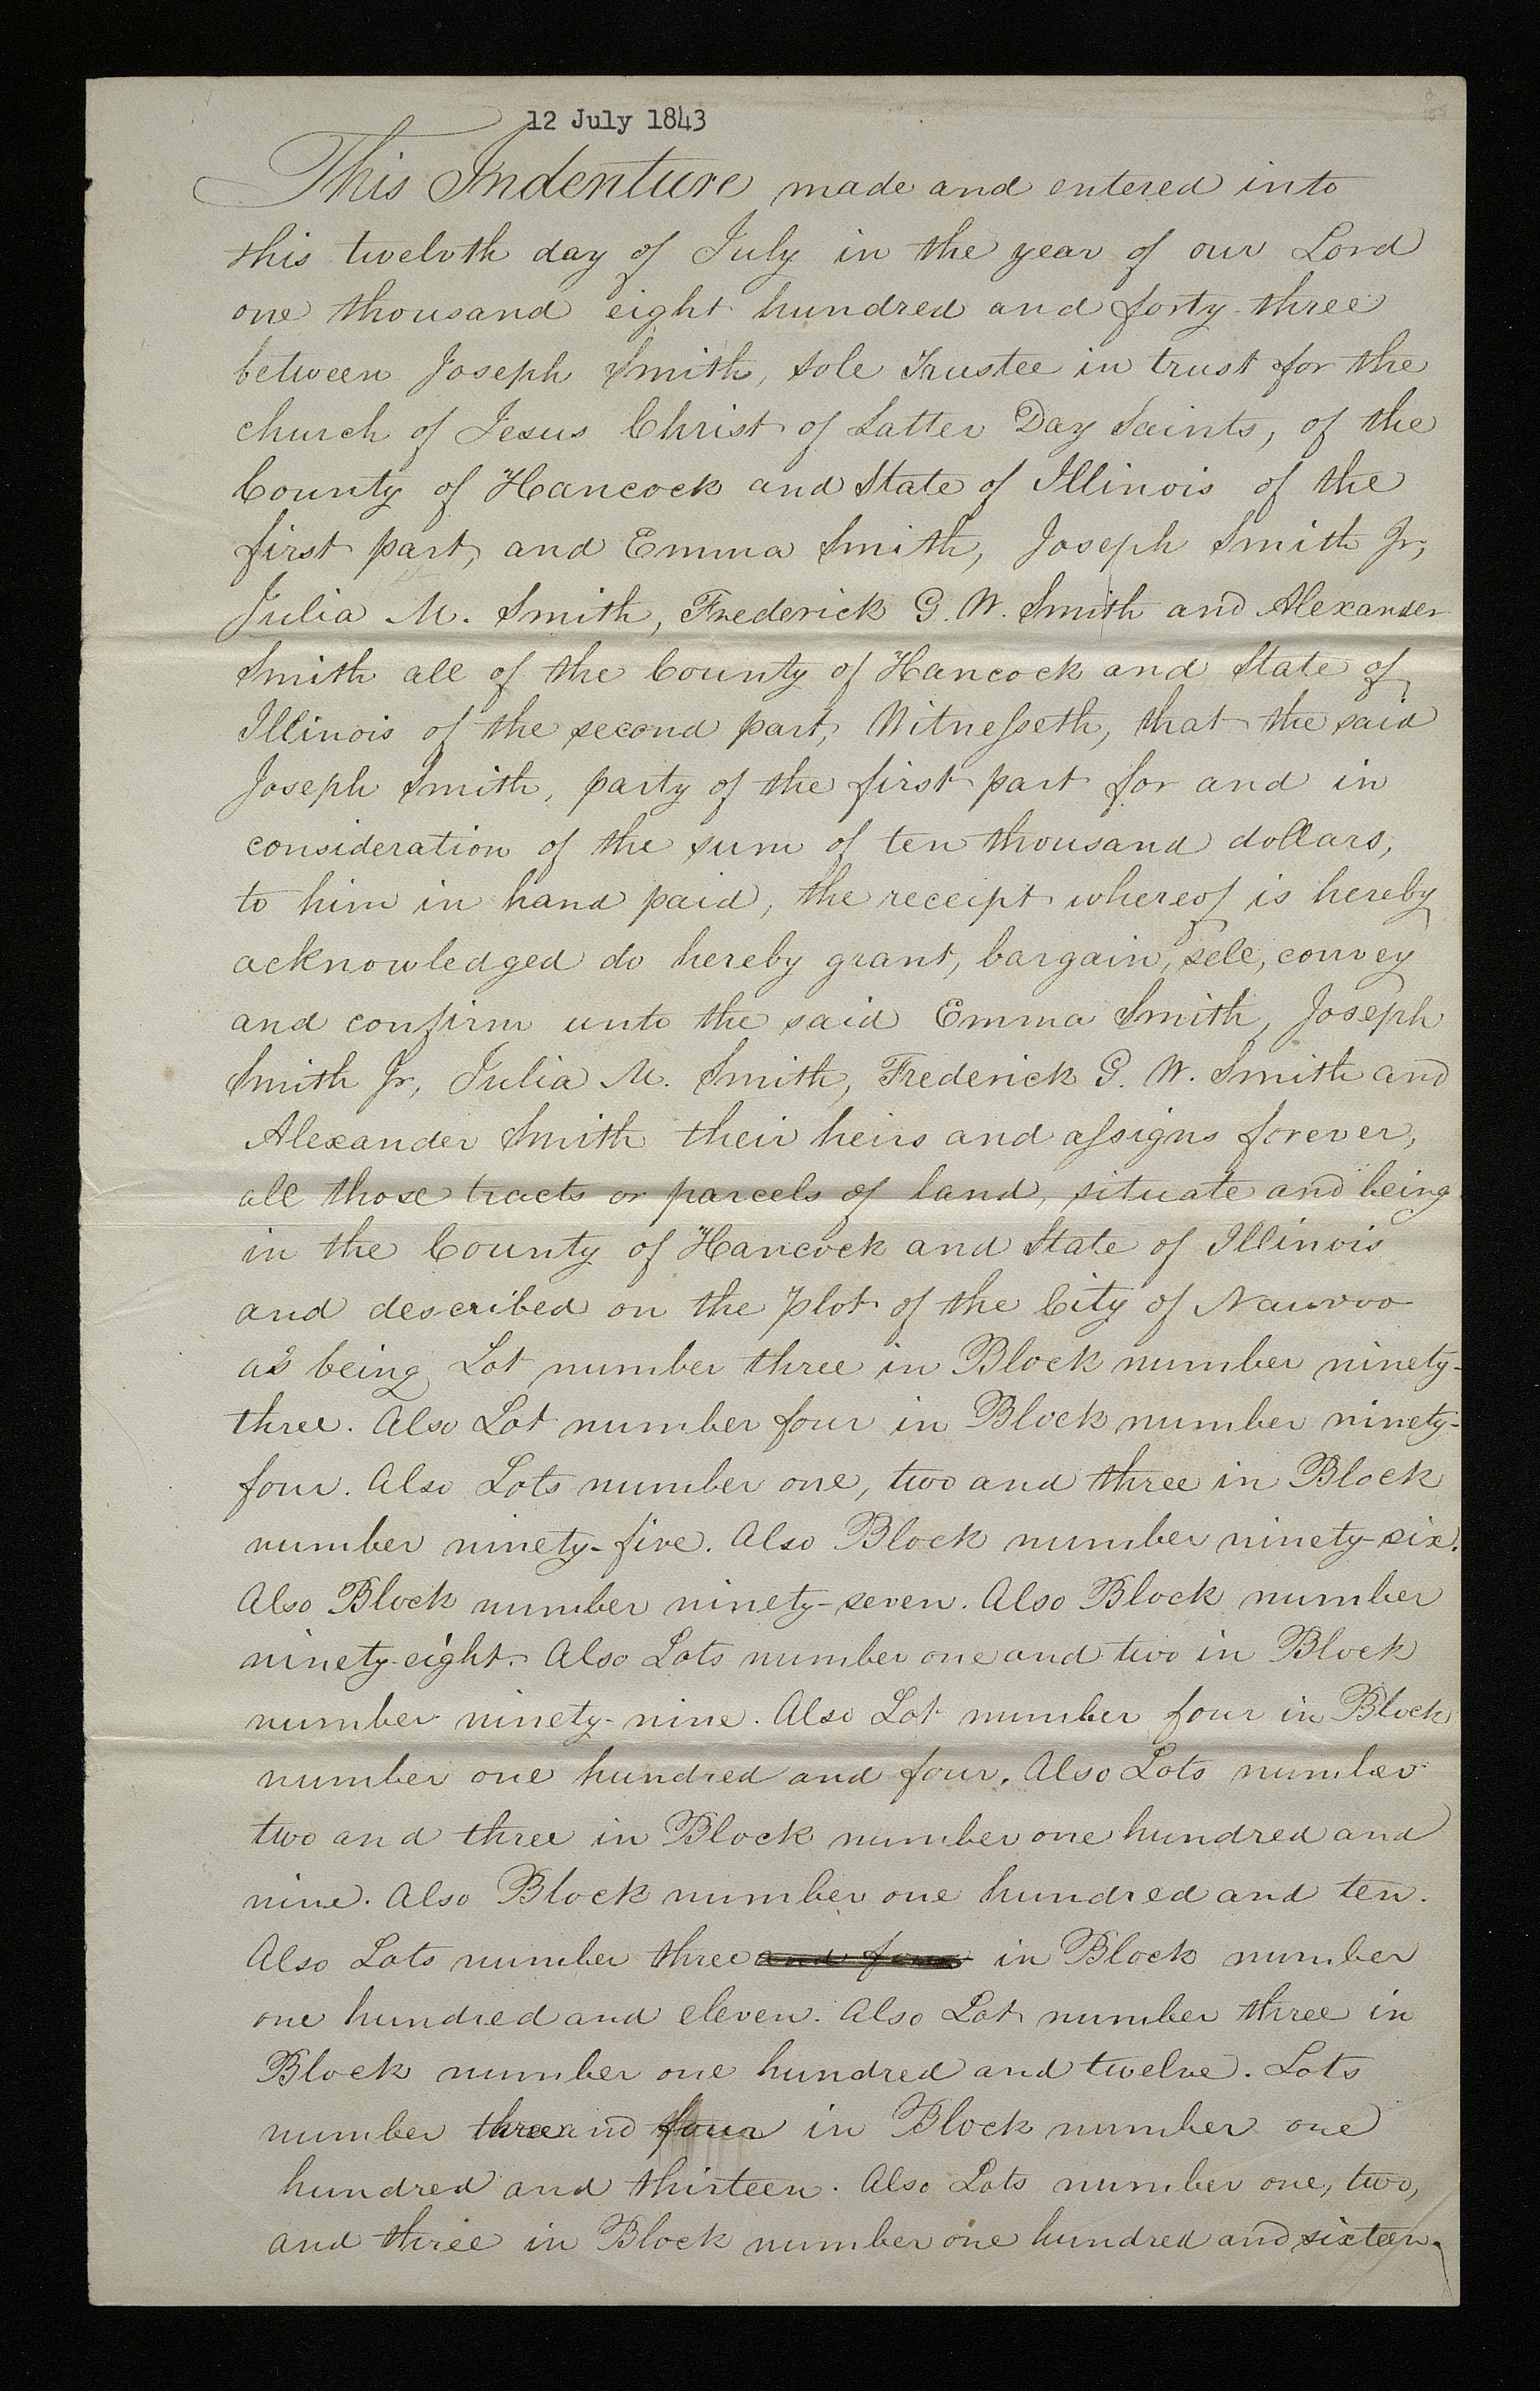 12 July 1843
This Indenture made and entered into
this twelvth day of July in the year of our Lord
one thousand eight hundred and forty three
between Joseph Smith, sole Trustee in trust for the
church of Jesus Christ of Latter Day Saints, of the
County of Hancock and State of Illinois of the
first part, and Emma Smith, Joseph Smith Jr,
Julia M. Smith, Frederick G. W. Smith and Alexander
Smith all of the County of Hancock and State of
Illinois of the second part, Witneſseth, that the said
Joseph Smith, party of the first part for and in
consideration of the sum of ten thousand dollars,
to him in hand paid, the receipt whereof is hereby
acknowledged do hereby grant, bargain, sell, convey
and confirm unto the said Emma Smith, Joseph
Smith Jr, Julia M. Smith, Frederick G. W. Smith and
Alexander Smith their heirs and aſsigns forever,
all those tracts or parcels of land, situate and being
in the County of Hancock and State of Illinois
and described on the plot of the City of Nauvoo
as being Lot number three in Block number ninety-
three. Also Lot number four in Block number ninety-
four. Also Lots number one, two and three in Block
number ninety-five. Also Block number ninety-six.
Also Block number ninety-seven. Also Block number
ninety-eight. Also Lots number one and two in Block
number ninety-nine. Also Lot number four in Block
number one hundred and four. Also Lots number
two and three in Block number one hundred and
nine. Also Block number one hundred and ten.
Also Lots number three and four in Block number
one hundred and eleven. Also Lot number three in
Block number one hundred and twelve. Lots
number three and four in Block number one
hundred and thirteen. Also Lots number one, two,
and three in Block number one hundred and sixteen.